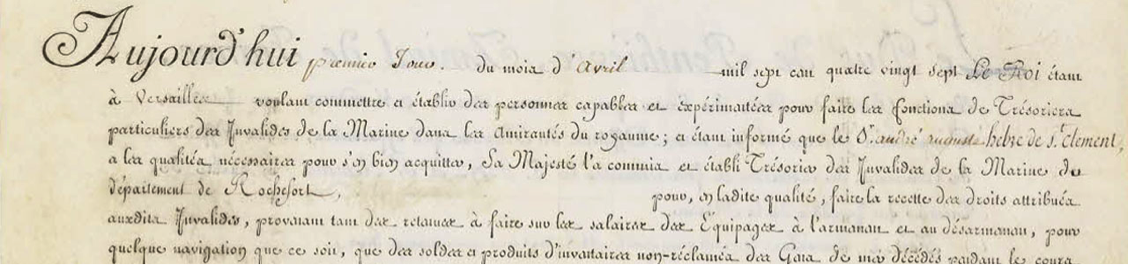 Aujourd'hui premier Jour du mois d'Avril mil sept cent quatre vingt sept Le Roi étant
à Versailles voulant commettre et établir des personnes capables et expérimentées pour faire les fonctions de Trésoriers
particuliers des Invalides de la Marine dans les Amirautés du royaume ; et étant informé que le S. andré auguste hebre de S.t Clement,
a les qualités nécessaires pour s'en bien acquitter, Sa Majesté l'a commis et établi Trésorier des Invalides de la Marine du
département de Rochefort, pour, en ladite qualité, faire la recette des droits attribués
auxdits Invalides, provenant tant des retenues à faire sur les salaires des Équipages à l'armement et au désarmement, pour
quelque navigation que ce soit, que des soldes et produits d'inventaires non-réclamés des Gens de mer décédés pendant le cours